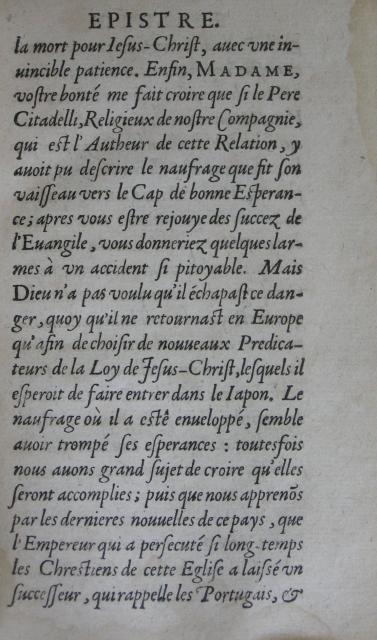 EPISTRE.
la mort pour Iesus-Christ, auec vne in-
uincible patience. Enfin, MADAME,
vostre bonté me fait croire que si le Pere
Citadelli, Religieux de nostre Compagnie,
qui est l'Autheur de cette Relation, y
auoit pu descrire le naufrage que fit son
vaisseau vers le Cap de bonne Esperan-
ce; apres vous estre rejouye des succez de
l'Euangile, vous donneriez quelques lar-
mes à vn accident si pitoyable. Mais
Dieu n'a pas voulu qu'il échapast ce dan-
ger, quoy qu'il ne retournast en Europe
qu'afin de choisir de nouueaux Predica-
teurs de la Loy de Jesus-Christ, lesquels il
esperoit de faire entrer dans le Iapon. Le
naufrage où il a esté enueloppé, semble
auoir trompé ses esperances : toutesfois
nous auons grand sujet de croire qu'elles
seront accomplies; puis que nous apprenõs
par les dernieres nouuelles de ce pays, que
l'Empereur qui a persecuté si long-temps
les Chrestiens de cette Eglise a laissé vn
successeur, qui rappelle les Portugais, &